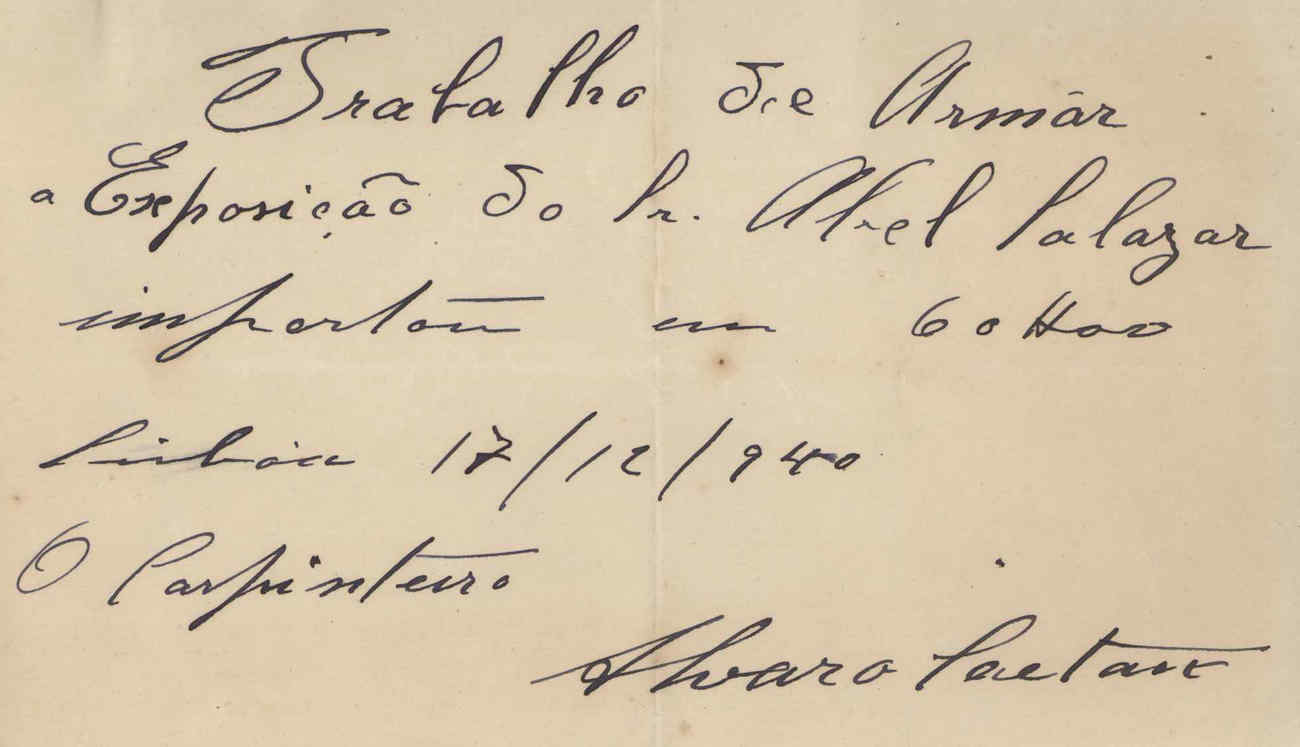 Trabalho de Armár
a Exposição do Sr. Abel Salazar
importou em 60$00
Lisbôa 17/12/940
O Carpinteiro
Alvaro Caetano